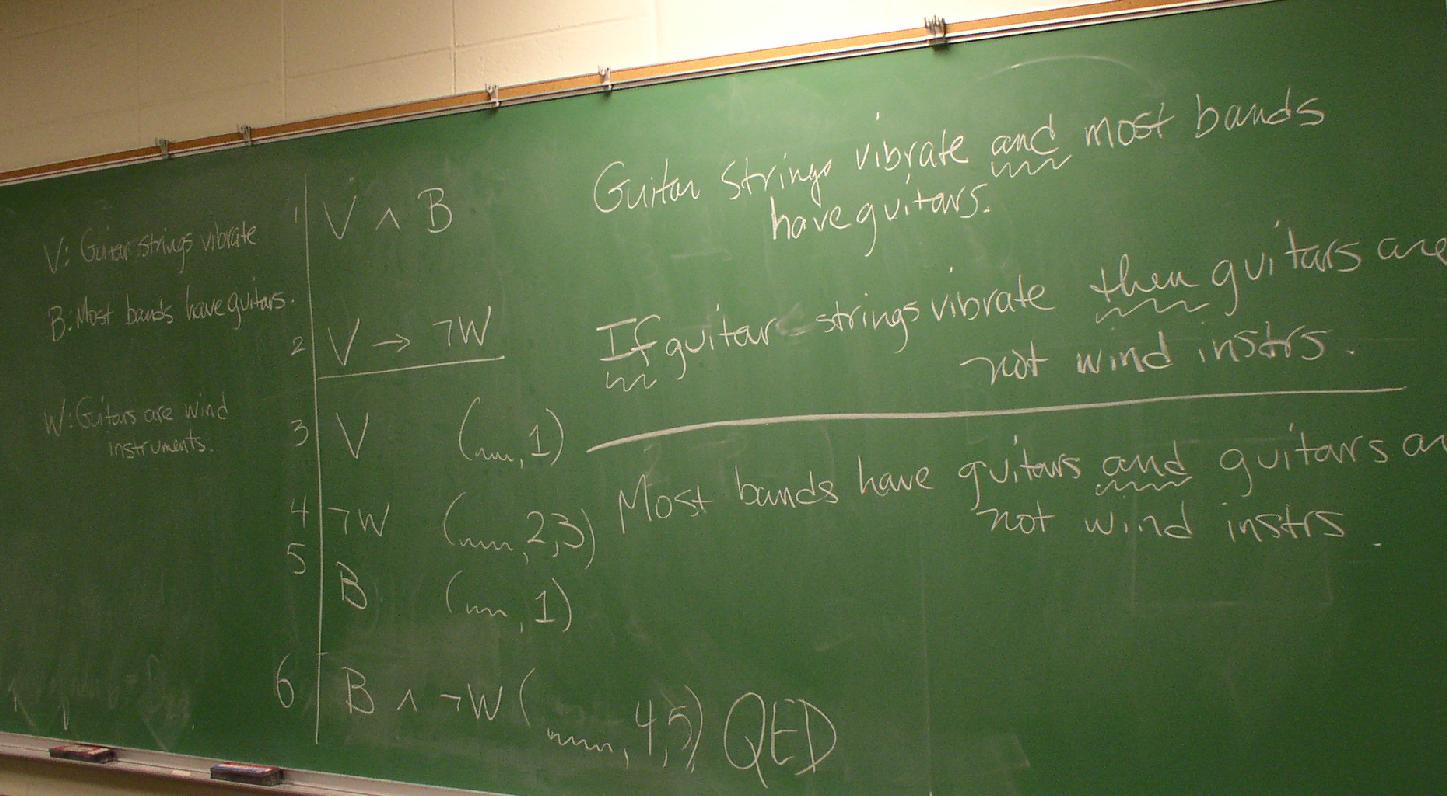 V: Guitar strings vibrate
B: Most bands have guitars.
W: Guitars are wind
instruments.
1 V ∧ B
2 V → ¬W
3 V ( , 1)
4 ¬W ( , 2,3)
5 B ( , 1)
6 B ∧ ¬W ( , 4,5) QED
Guitar strings vibrate and most bands
have guitars.
If guitar strings vibrate then guitars are
not wind instrs.
Most bands have guitars and guitars a
not wind instrs.